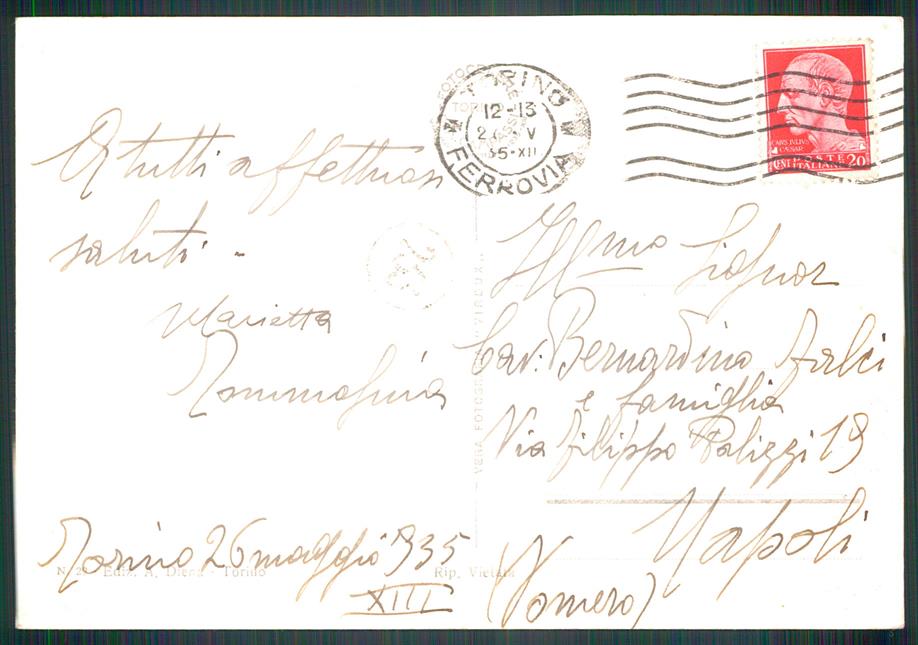 A tutti affettuosi
saluti -
Marietta
Tommasina
Torino 26 maggio 935
XIII
TORINO
12-13
V
35-XII
FERROVIA
CAIVS IVLIVS
CAESAR
CENT. 20
POSTE ITALIANE
Ill mo Signor
Cav. Bernardino Falci
e famiglia
Via Filippo Palizzi 19
Napoli
(Vomero)
VERA FOTOGRAFIA
Ediz. A. Diena - Torino
Rip. Vietata